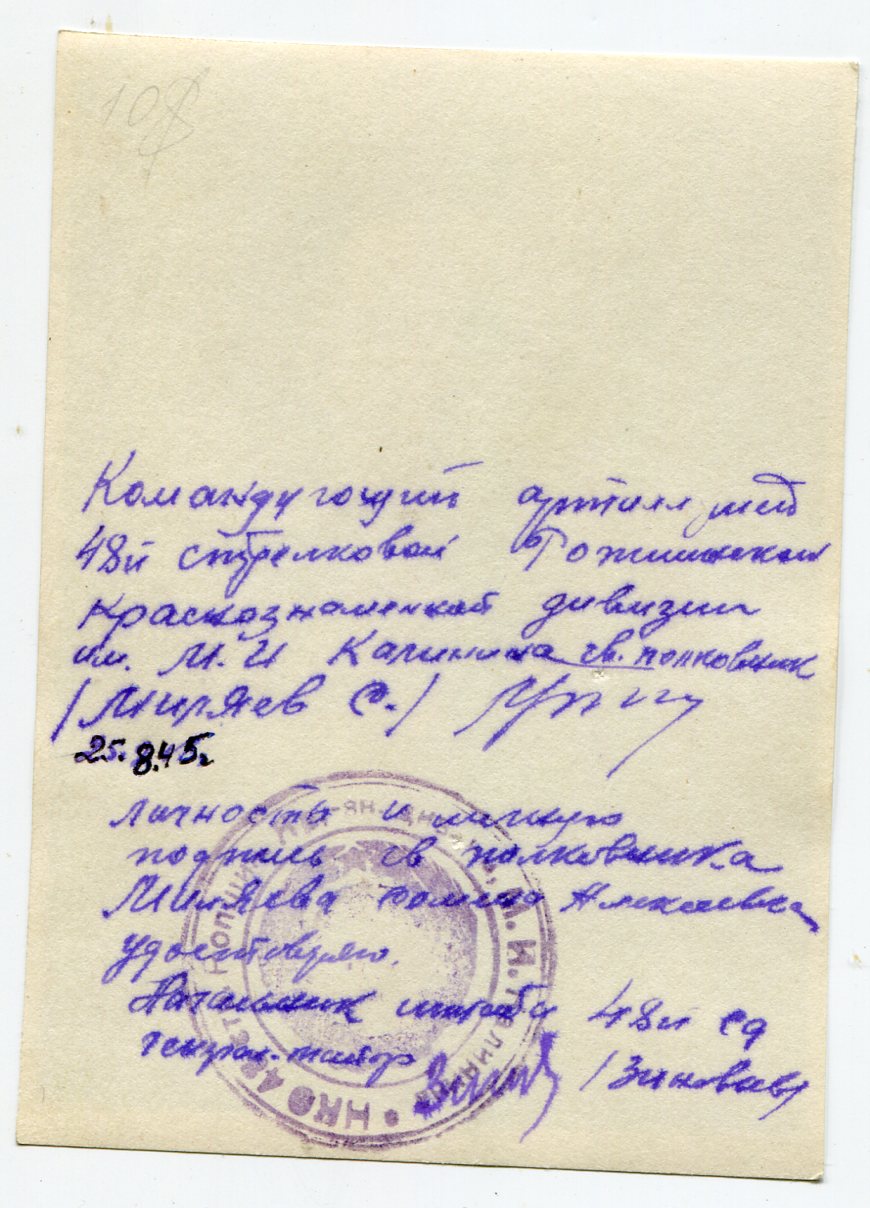 108
Командующий артиллерией
48й стрелковой
Краснознаменной дивизии
им. М.И Калинина гв. полковник
/Миляев С./
25.8.45г.
личность и личную
подпись гв полковника
Миляева
удостоверяю.
Начальник штаба 48й сд
генерал-майор /Зиновьев/
НКО 48 М.И. КАЛИНИНА